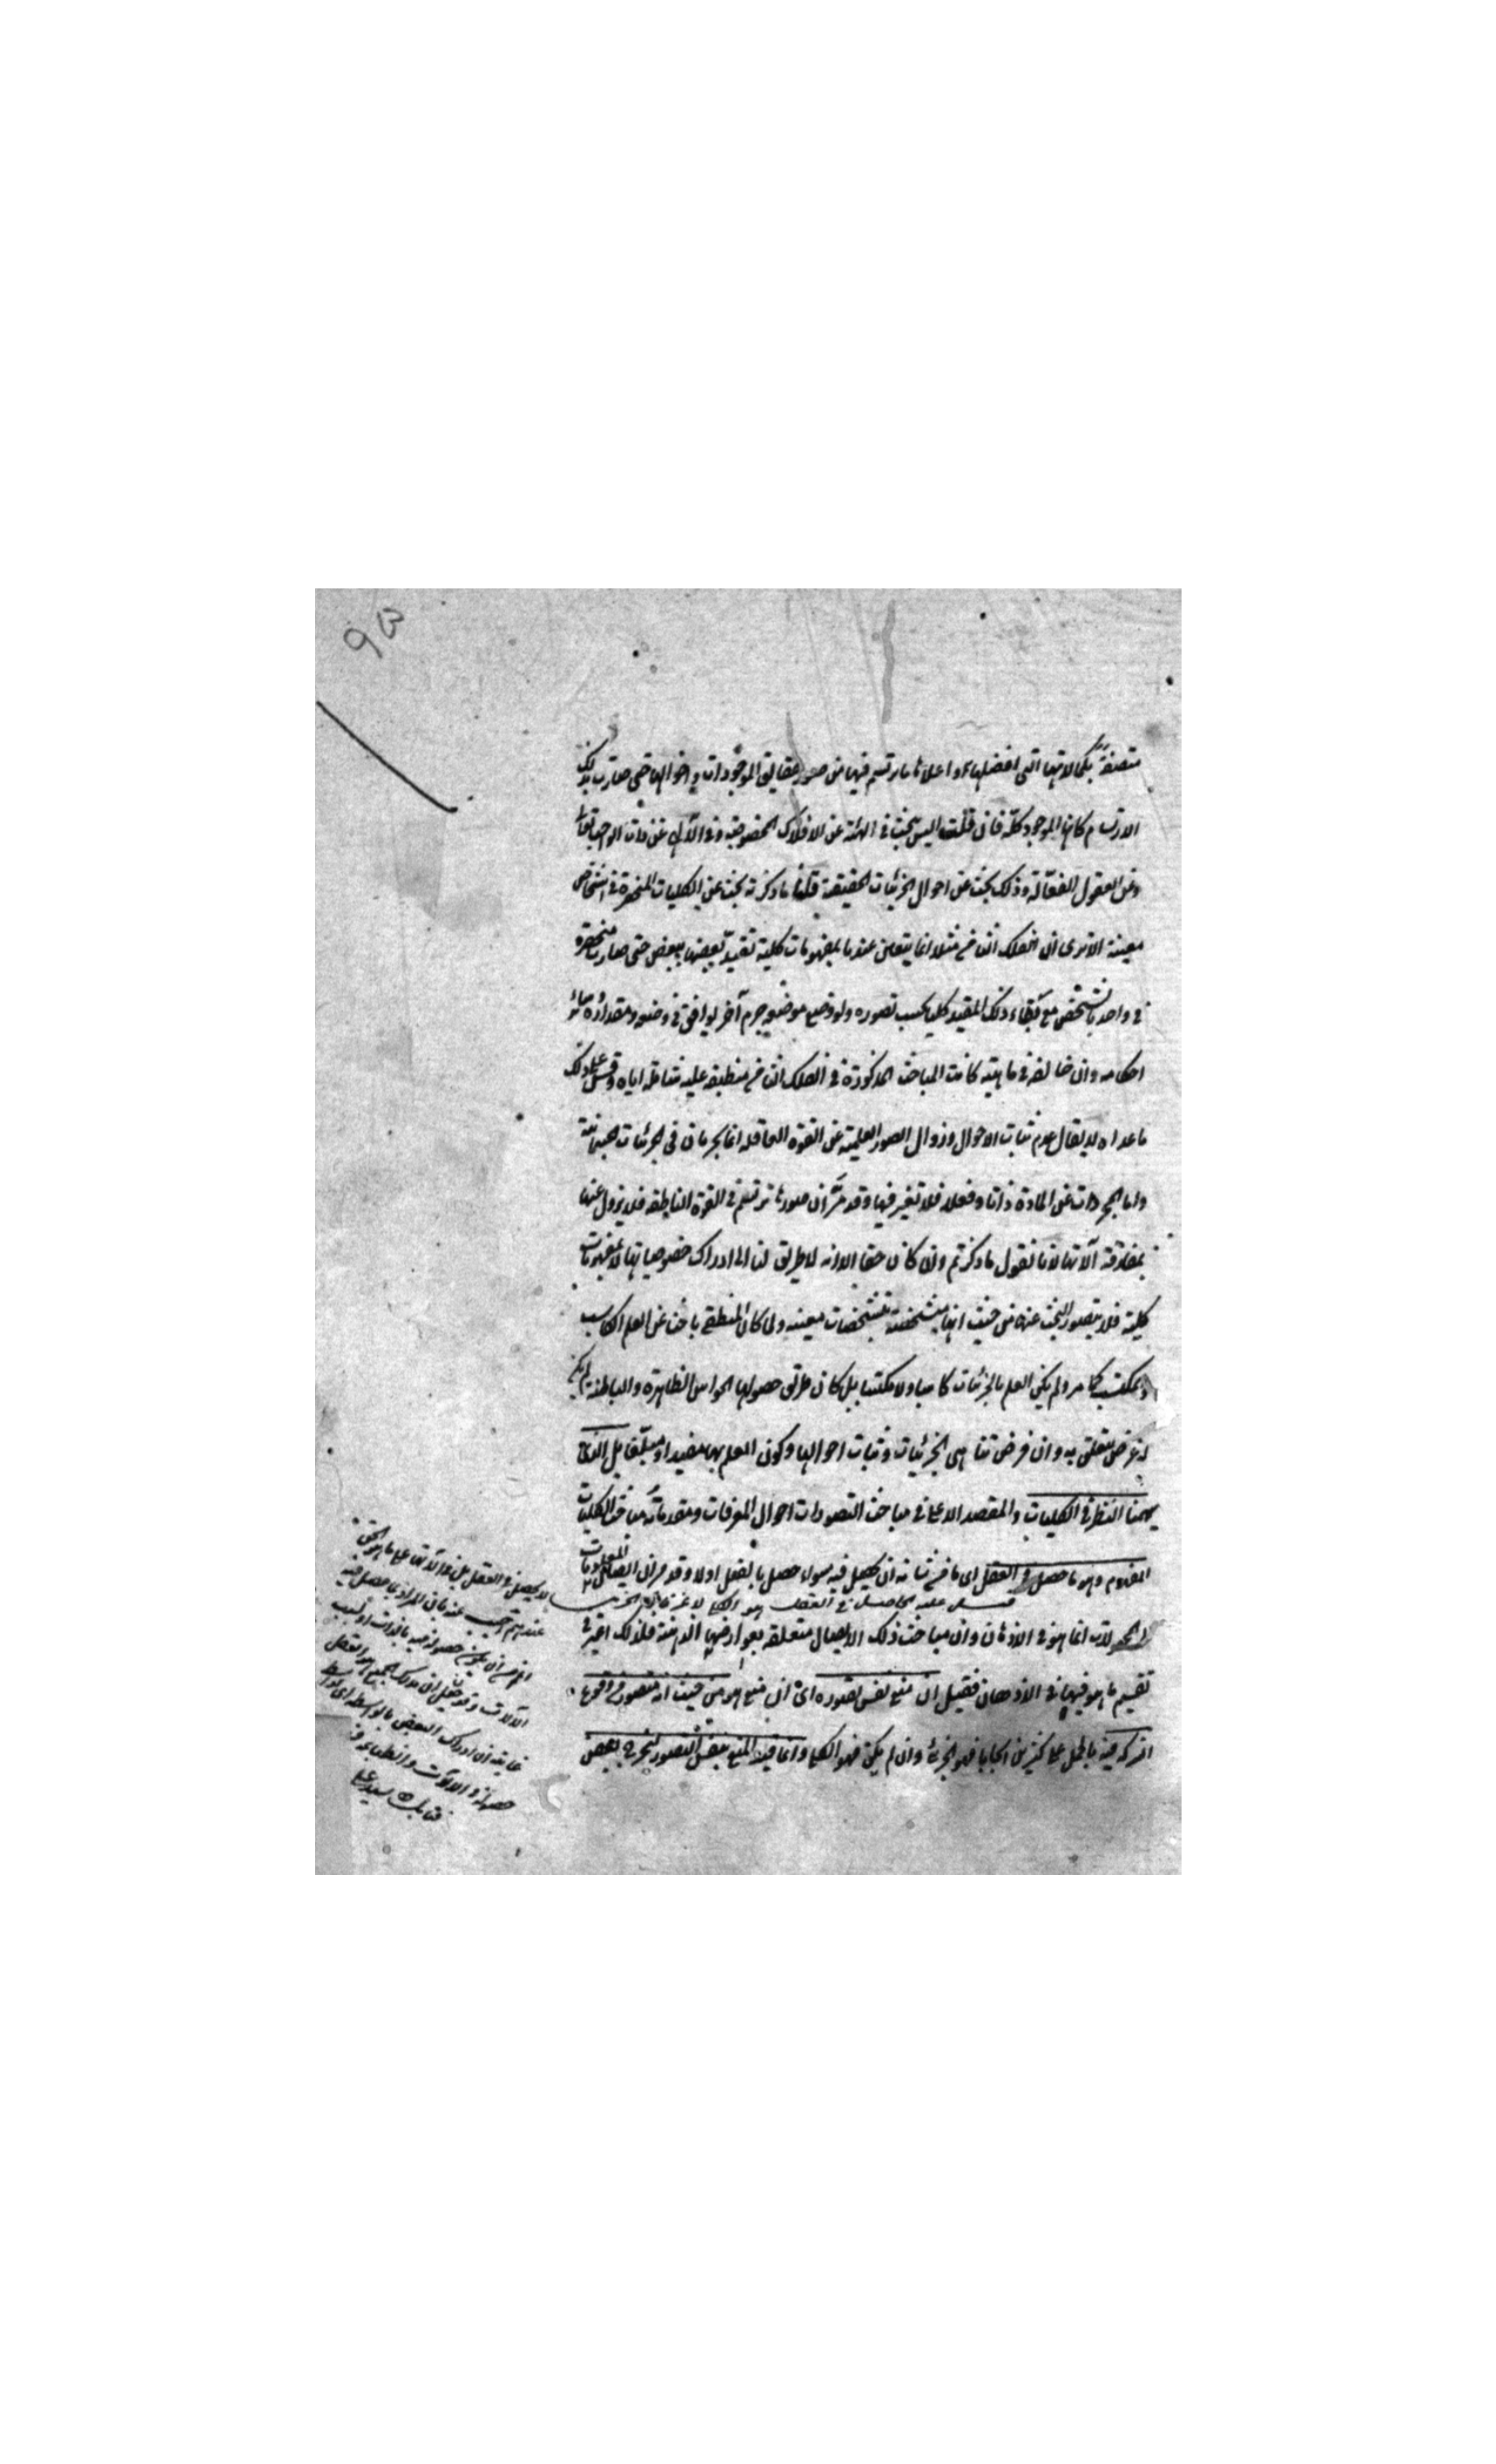 متصفة بكمالاتها التى افضلها واعلاها ما يرتسم فيها من صور حقايق الموجودات واحوالها حتى صارت بذلك
الارتسام كانها الموجود كله فان قلت اليس يبحث فى الهيئة عن الافلاك المخصوصة وفى الآلهى عن ذات الواجب تعالى
وعن العقول الفعالة وذلك بحث عن احوال الجزئيات الحقيقية قلنا ما ذكرته بحث عن الكليات المنحصرة فى اشخاص
معينة الا ترى ان الفلك الثامن مثلا انما يتعلق عندنا بمفهومات كلية تقيد بعضها ببعض حتى صارت منحصرة
فى واحد بالشخص مع بقاء ذلك المقيد كليا بحسب تصوره ولو وضع موضعه جرم آخر يوافقه فى وضعه ومقداره وسائر
احكامه وان خالفه فى ماهيته كانت المباحث المذكورة فى الفلك الثامن منطبقة عليه متناولة اياه وقس على ذلك
ما عداه لا يقال عدم ثبات الاحوال وزوال الصور العلمية عن القوة العاقلة انما يجريان فى الجزئيات الجسمانية
واما المجردات عن المادة ذاتا وفعلا فلا تغير فيها وقد مر ان صورها ترتسم فى القوة الناطقة فلا يزول عنها
بمفارقة آلاتها لانا نقول ما ذكرتم وان كان حقا الا انه لا طريق لنا الى ادراك خصوصياتها الا بمفهومات
كلية فلا يتصور البحث عنها من حيث انها متشخصة بتشخصات معينة ولما كان المنطقى باحثا عن العلم الكاسب
والمكتسب كما مر ولم يكن العلم بالجزئيات كاسبا ولا مكتسبا بل كان طريق حصولها الحواس الظاهرة والباطنة لم يكن
له غرض يتعلق به وان فرض تناهى الجزئيات وثبات احوالها وكون العلم بها مفيدا او مبلغا بل الذى
يهمنا النظر فى الكليات والمقصد الاعلى فى مباحث التصورات احوال المعرفات ومقدماته مباحث الكليات
المفهوم وهو ما حصل فى العقل اى ما من شانه ان يحصل فيه سواء حصل بالفعل اولا وقد مر ان ايصال المعلومات
قيل عليه الحاصل فى العقل هو الكلى لا غير فان الجزئى
الى المجهولات انما هو فى الاذهان وان مباحث ذلك الايصال متعلقة بعوارضها الذهنية فلذلك اعتبر فى
تقسيم ما هو فيها فى الاذهان فقيل ان منع نفس تصوره اى ان منع هو من حيث انه متصور وقوع
الشركة فيه بالحمل على كثيرين ايجابا فهو الجزئى وان لم يمنع فهو الكلى وانما قيد المنع بنفس التصور ليخرج بعض
لا يحصل فى العقل بل فى الآلات على ما هو الحق
عندهم اجيب عنه بان المراد بما حصل فيه
الآلات وقد قيل ان مدرك الجميع هو العقل
غايته ان ادراك البعض بالواسطة